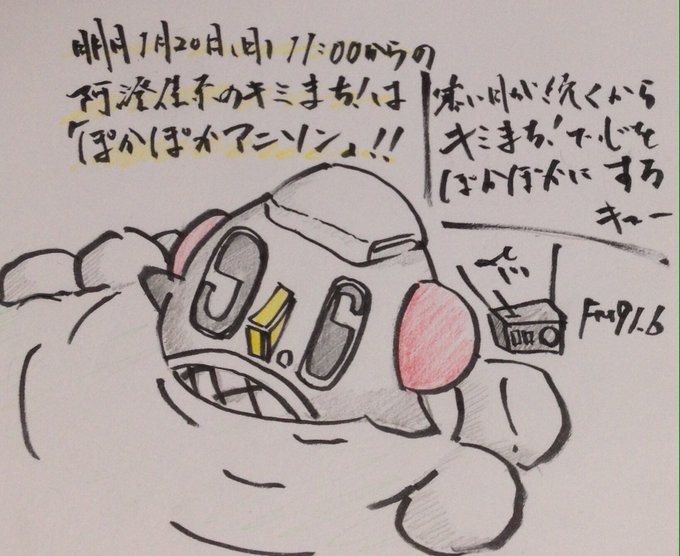 明日1月20日(日)11:00からの
阿澄佳奈のキミまち!は
「ぽかぽかアニソン」!!
寒い日が続くから
キミまち!で心を
ぽかぽかにする
キュー
FM91.6